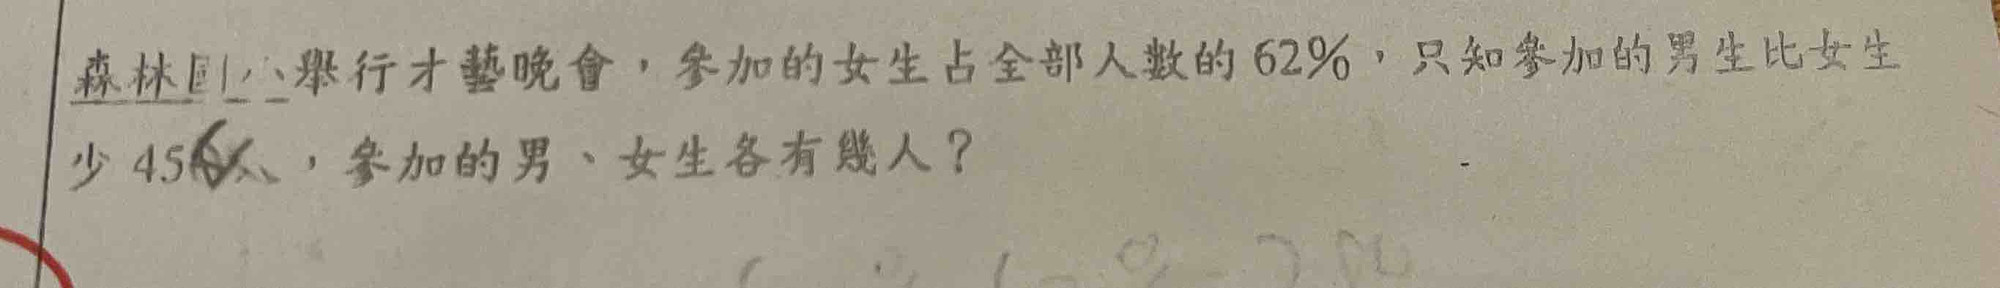 森林國小舉行才藝晚會，參加的女生占全部人數的62%，只知參加的男生比女生
少456人，參加的男、女生各有幾人？